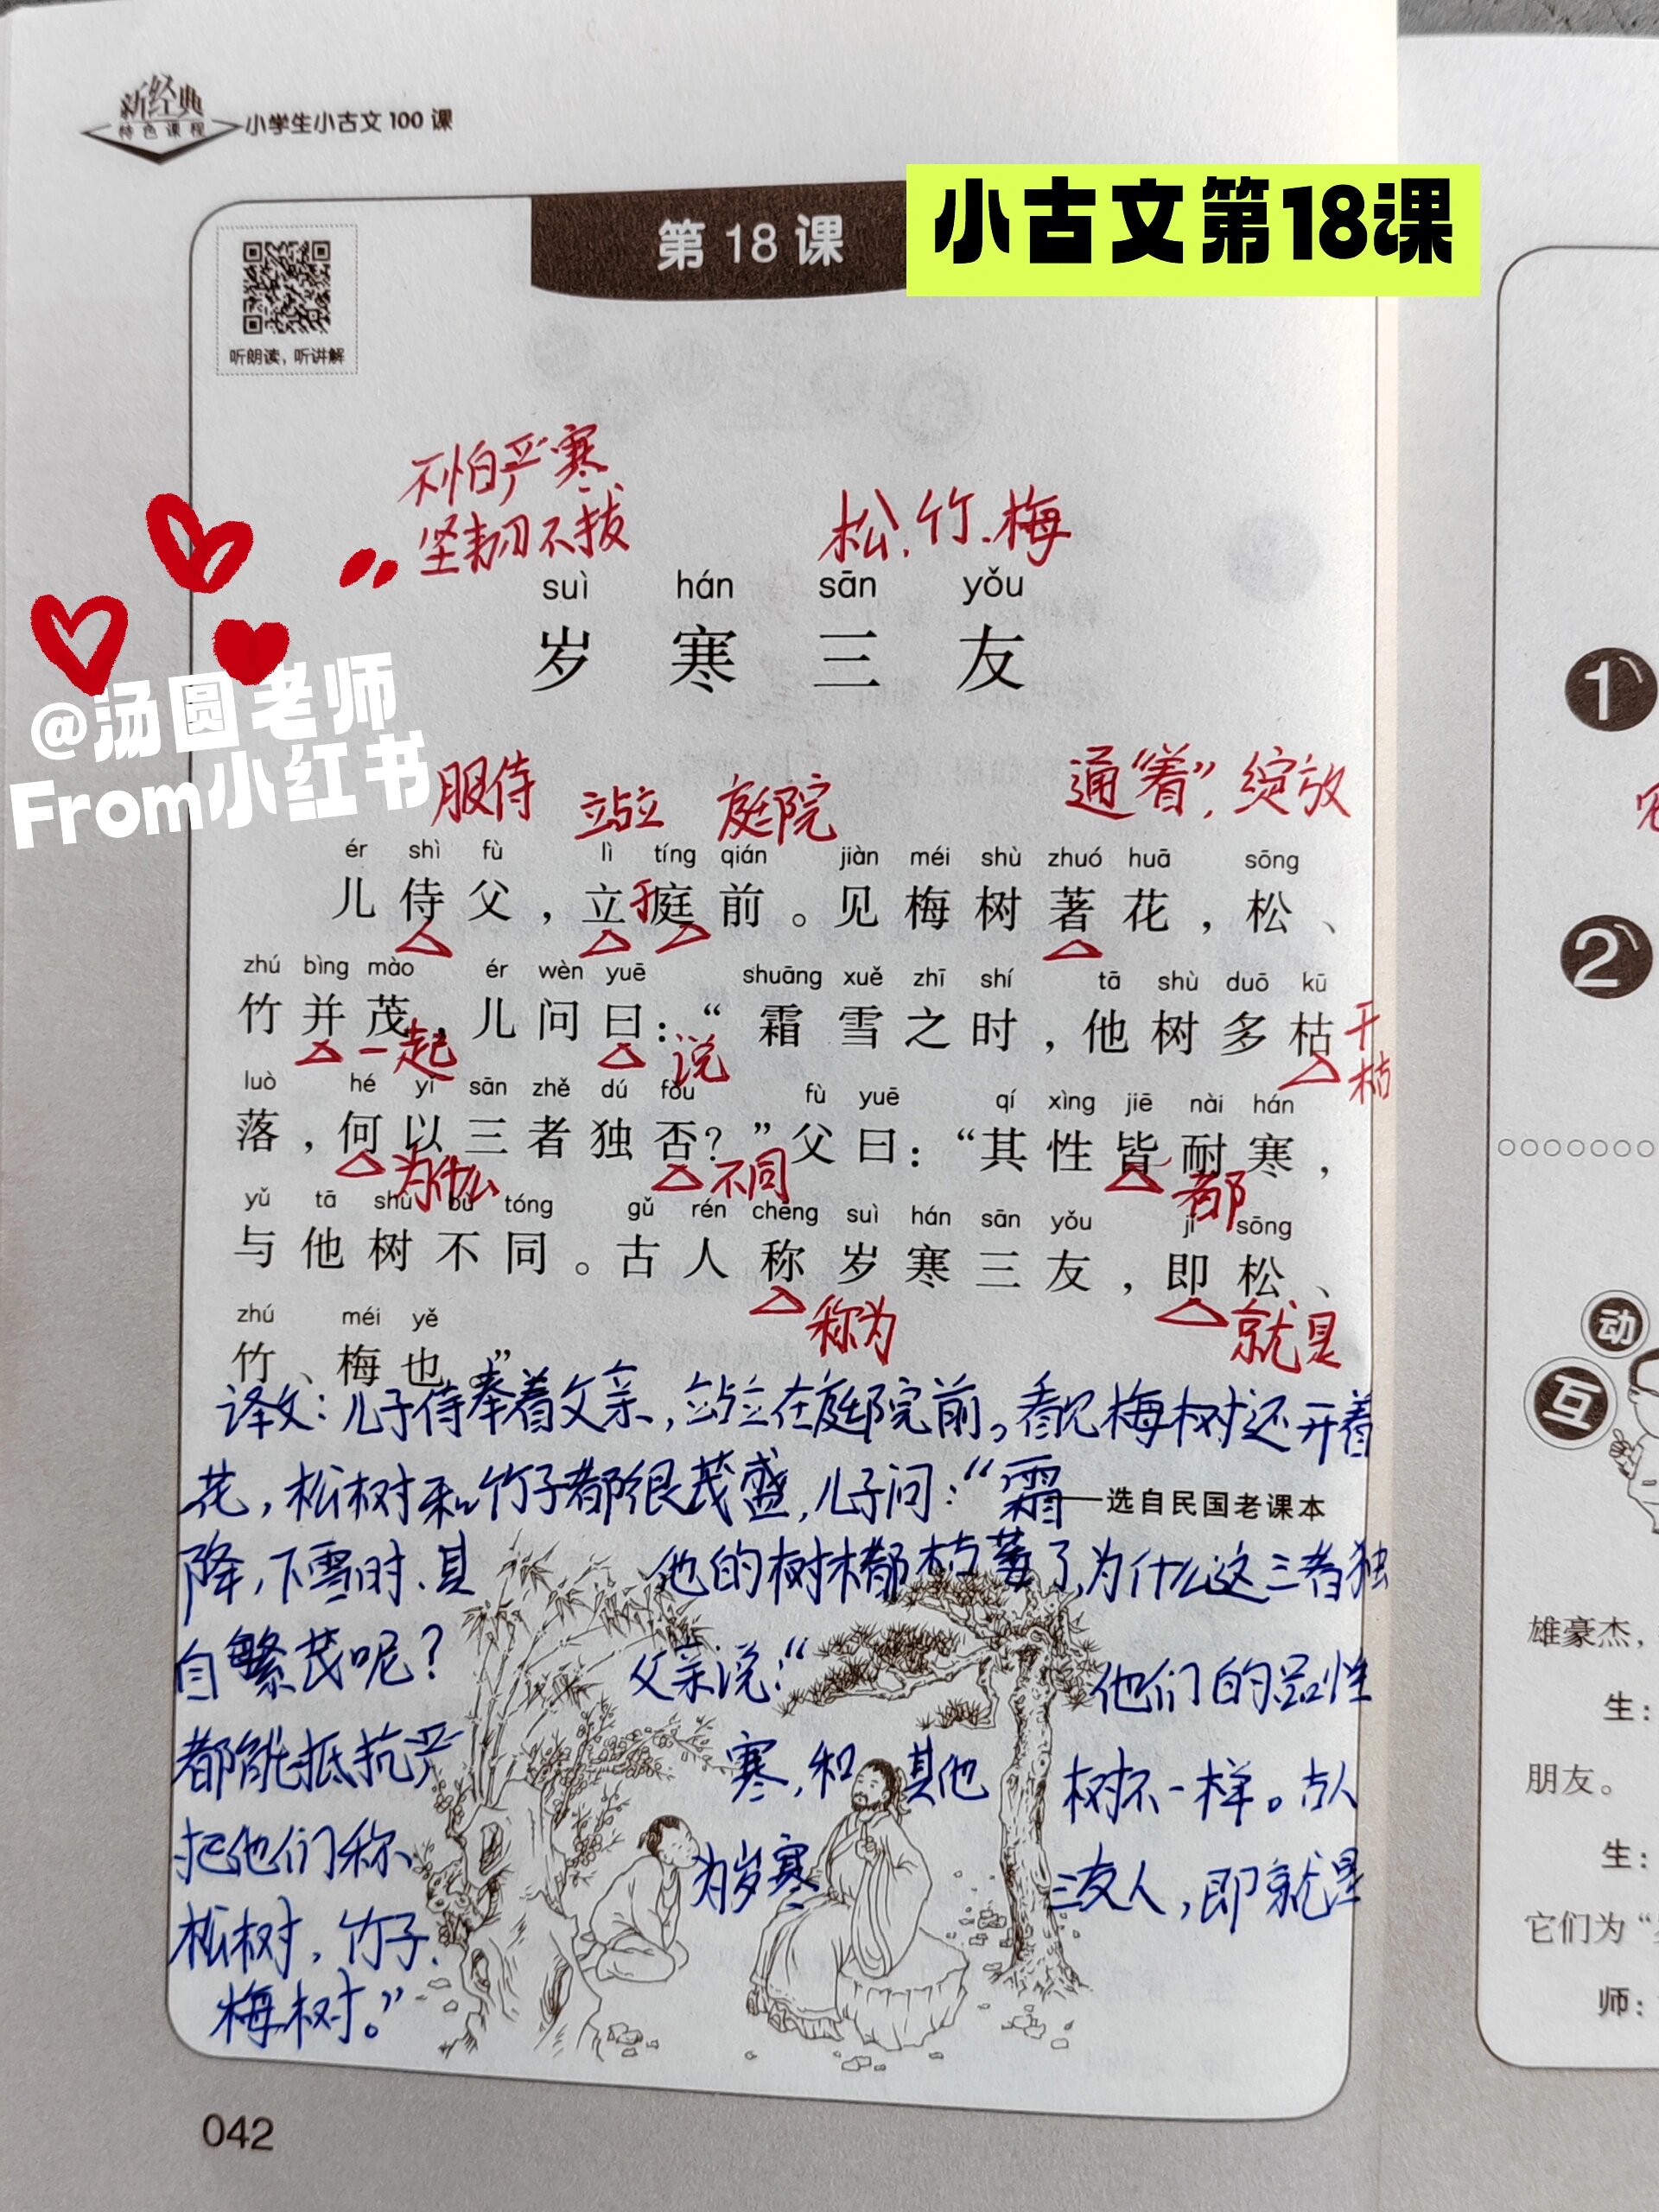 新经典
特色课程
小学生小古文 100 课
第 18 课
小古文第18课
听朗读，听讲解
不怕严寒
坚韧不拔
松、竹、梅
suì hán sān yǒu
岁寒三友
@汤圆老师
From小红书
服侍 站立 庭院 通“着”，绽放
ér shì fù lì tíng qián jiàn méi shù zhuó huā sōng
儿侍父，立于庭前。见梅树著花，松、
zhú bìng mào ér wèn yuē shuāng xuě zhī shí tā shù duō kū
竹并茂，儿问曰：“霜雪之时，他树多枯
一起 说 干枯
luò hé yǐ sān zhě dú fǒu fù yuē qí xìng jiē nài hán
落，何以三者独否？”父曰：“其性皆耐寒，
为什么 不同 都
yǔ tā shù bù tóng gǔ rén chēng suì hán sān yǒu jí sōng
与他树不同。古人称岁寒三友，即松、
称为 就是
zhú méi yě
竹、梅也。”
译文：儿子侍奉着父亲，站立在庭院前。看见梅树还开着
花，松树和竹子都很茂盛，儿子问：“霜
——选自民国老课本
降，下雪时、其他的树木都枯萎了，为什么这三者独
自繁茂呢？父亲说：“他们的品性
都能抵抗严寒，和其他树不一样。古人
把他们称为岁寒三友人，即就是
松树，竹子、
梅树。”
042
1
2
动
互
雄豪杰，
生：
朋友。
生：
它们为“
师：